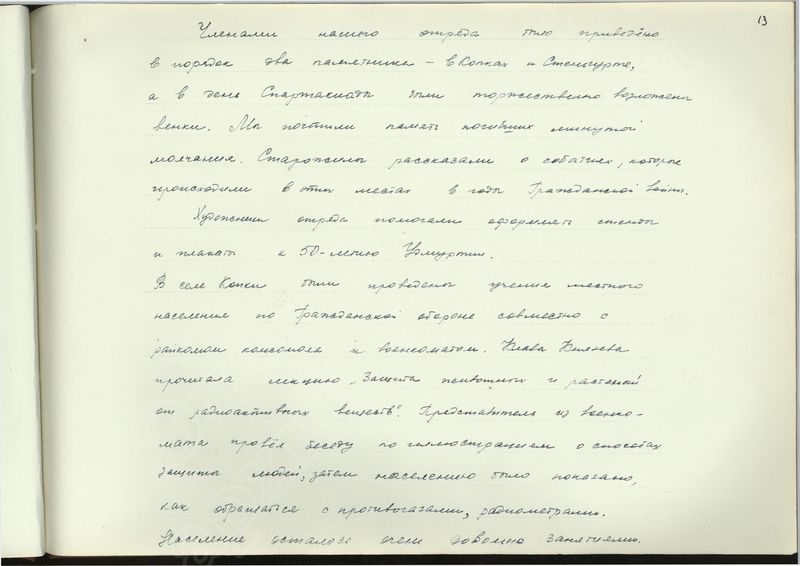 13
Членами нашего отряда было приведено
в порядок два памятника – в Копках и Стеньгурте,
а в день Спартакиады были торжественно возложены
венки. Мы почтили память погибших минутой
молчания. Старожилы рассказали о событиях, которые
происходили в этих местах в годы Гражданской войны.
Художники отряда помогали оформлять стенды
и плакаты к 50-летию Удмуртии.
В селе Копки были проведены учения местного
населения по Гражданской обороне совместно с
райкомом комсомола и военкоматом. Клава
прочитала лекцию „Защита животных и растений
от радиоактивных веществ". Представитель из военко-
мата провёл беседу по иллюстрациям о способах
защиты людей, затем населению было показано,
как обращаться с противогазами, радиометрами.
Население осталось очень довольно занятиями.